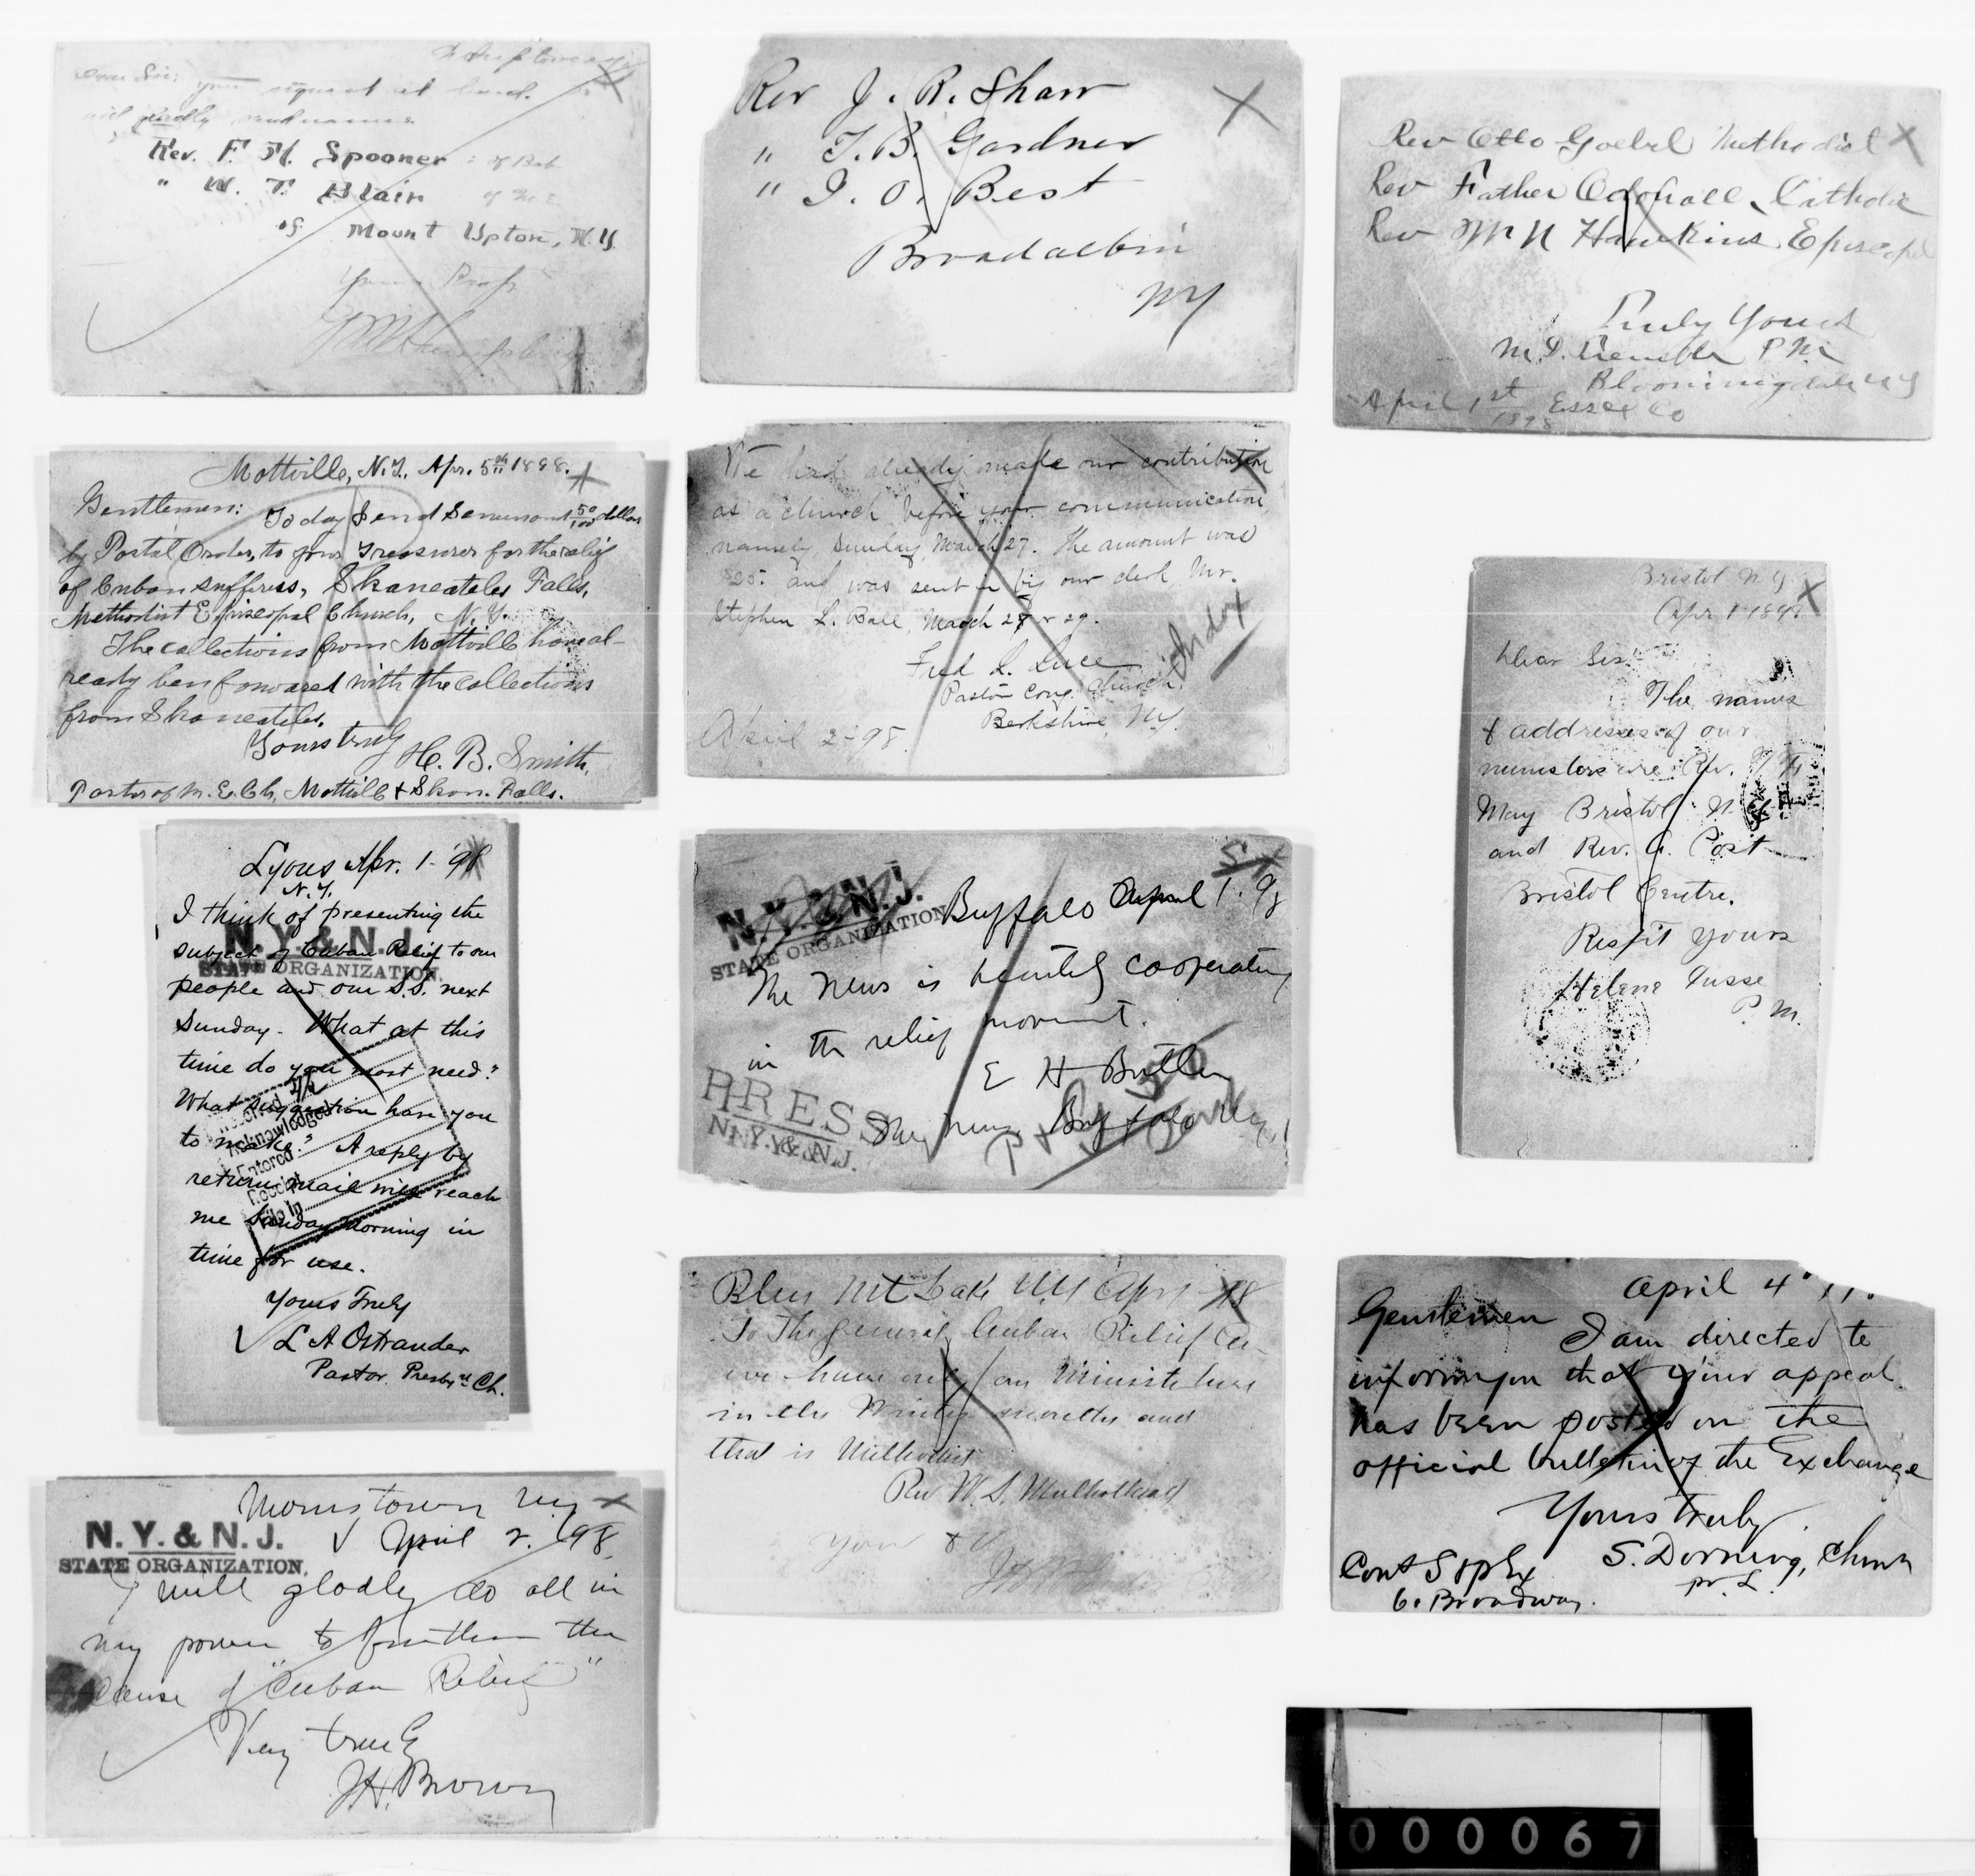 Dear Sir: your request at hand.
will gladly send names.
Rev. F. H. Spooner
" W. T. Blain
of Mount Upton, N.Y.
Rev J. R. Shaw
" T. B. Gardner
" I. O. Best
Broadalbin
NY
Rev Otto Goebel Methodist
Rev Father Catholic
Rev Wm N Hawkins Episcopal
Truly Yours
M. D. P.M.
Bloomingdale NY
April 1st Essex Co
1898
Mottville, N.Y., Apr. 5th 1898.
Gentlemen: Today I send Seven and 50/100 dollars
by Postal Order, to your Treasurer for the relief
of Cuban sufferers, Skaneateles Falls,
Methodist Episcopal Church, N.Y.
The collections from Mottville have al-
ready been forwared with the collections
from Skaneateles.
Yours truly
H. B. Smith,
Pastor of M. E. Ch. Mottville & Skan. Falls.
We had already made our contribution
as a church before your communication,
namely Sunday, March 27. The amount was
$25. and was sent in by our clerk, Mr.
Stephen L. Ball March 28 or 29.
Fred L. Luce
Pastor Cong. Church,
Berkshire, N.Y.
April 2-98.
Bristol N.Y.
Apr 1 1898
Dear Sir.
The names
& addresses of our
ministers are Rev.
May Bristol N.Y.
and Rev. A. Post
Bristol Centre.
Resp't yours
Helena Gusse
P.M.
Lyons Apr. 1-'98
N.Y.
I think of presenting the
N.Y. & N.J.
subject of Cuban Relief to our
STATE ORGANIZATION.
people and our S.S. next
Sunday. What at this
time do you most need?
What suggestion have you
to make? A reply by
return mail will reach
me Sunday morning in
time for use.
Received
Acknowledged
Entered
Receipt
File In
Yours Truly
L A Ostrander
Pastor Presbyn Ch.
N.Y. & N.J.
STATE ORGANIZATION
Buffalo April 1. 98
The News is heartily cooperating
in the relief movement.
E H Butler
PRESS
N.Y. & N.J.
News Buffalo N.Y.
Blue Mt Lake NY Apr 98
To The General Cuban Relief Co.
we have only one Minister here
in the Winter months and
that is Methodist
Rev W. S. Mulholland
April 4
Gentlemen
I am directed to
inform you that your appeal
has been posted on the
official bulletin of the Exchange
Yours truly
S. Dorning, Chmn
pr. L.
Cons Stk & P Ex
60 Broadway.
Morristown NY
N.Y. & N.J.
April 2. 98.
STATE ORGANIZATION.
I will gladly do all in
my power to further the
cause of "Cuban Relief"
Very truly
J.H. Brown
000067